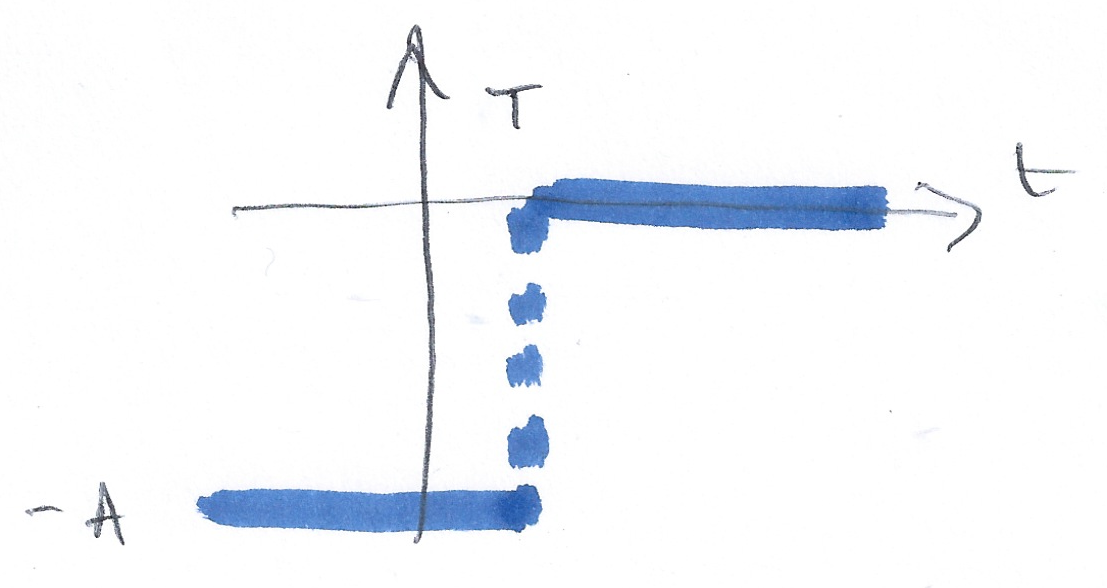 T
t
- A